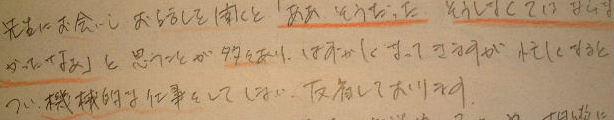 先生にお会いし お話しを聞くと「ああ そうだった そうしなくてはならな
かったなあ」と思うことが多々あり、はずかしくなってきますが 忙しくなると
つい、機械的な仕事をしてしまい、反省しております。